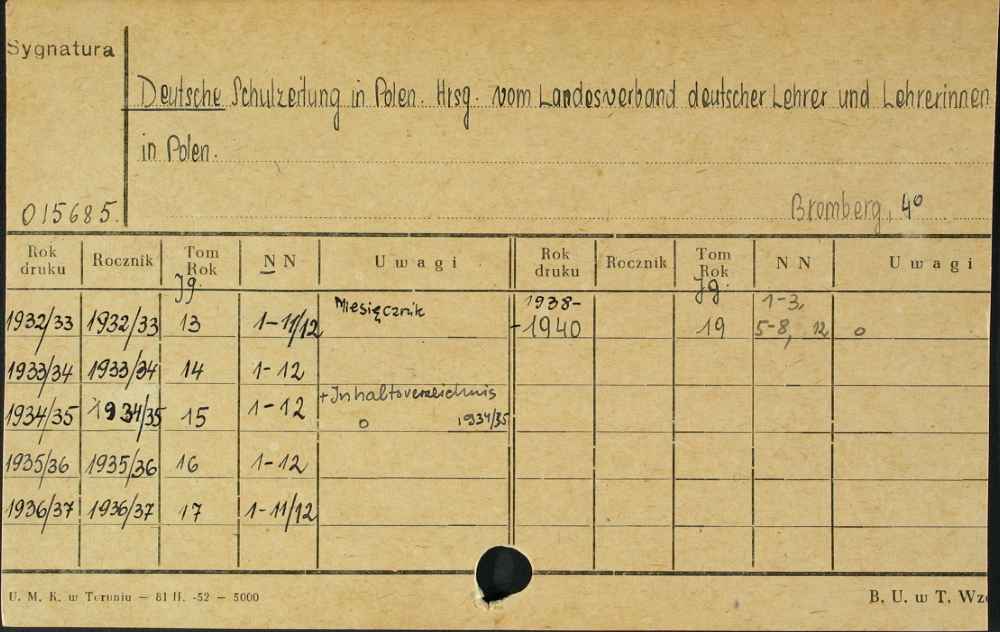 Sygnatura
Deutsche Schulzeitung in Polen. Hrsg. vom Landesverband deutscher Lehrer und Lehrerinnen
in Polen.
015685. Bromberg, 4°
Rok druku Rocznik Tom Rok Jg. N N U w a g i Rok druku Rocznik Tom Rok Jg. N N U w a g i
1932/33 1932/33 13 1-11/12 Miesięcznik 1938-1940 19 1-3, 5-8, 12 o
1933/34 1933/34 14 1-12
1934/35 1934/35 15 1-12 + Inhaltsverzeichnis o 1934/35
1935/36 1935/36 16 1-12
1936/37 1936/37 17 1-11/12
U. M. K. w Toruniu — 81 II. -52 — 5000 B. U. w T. Wzó